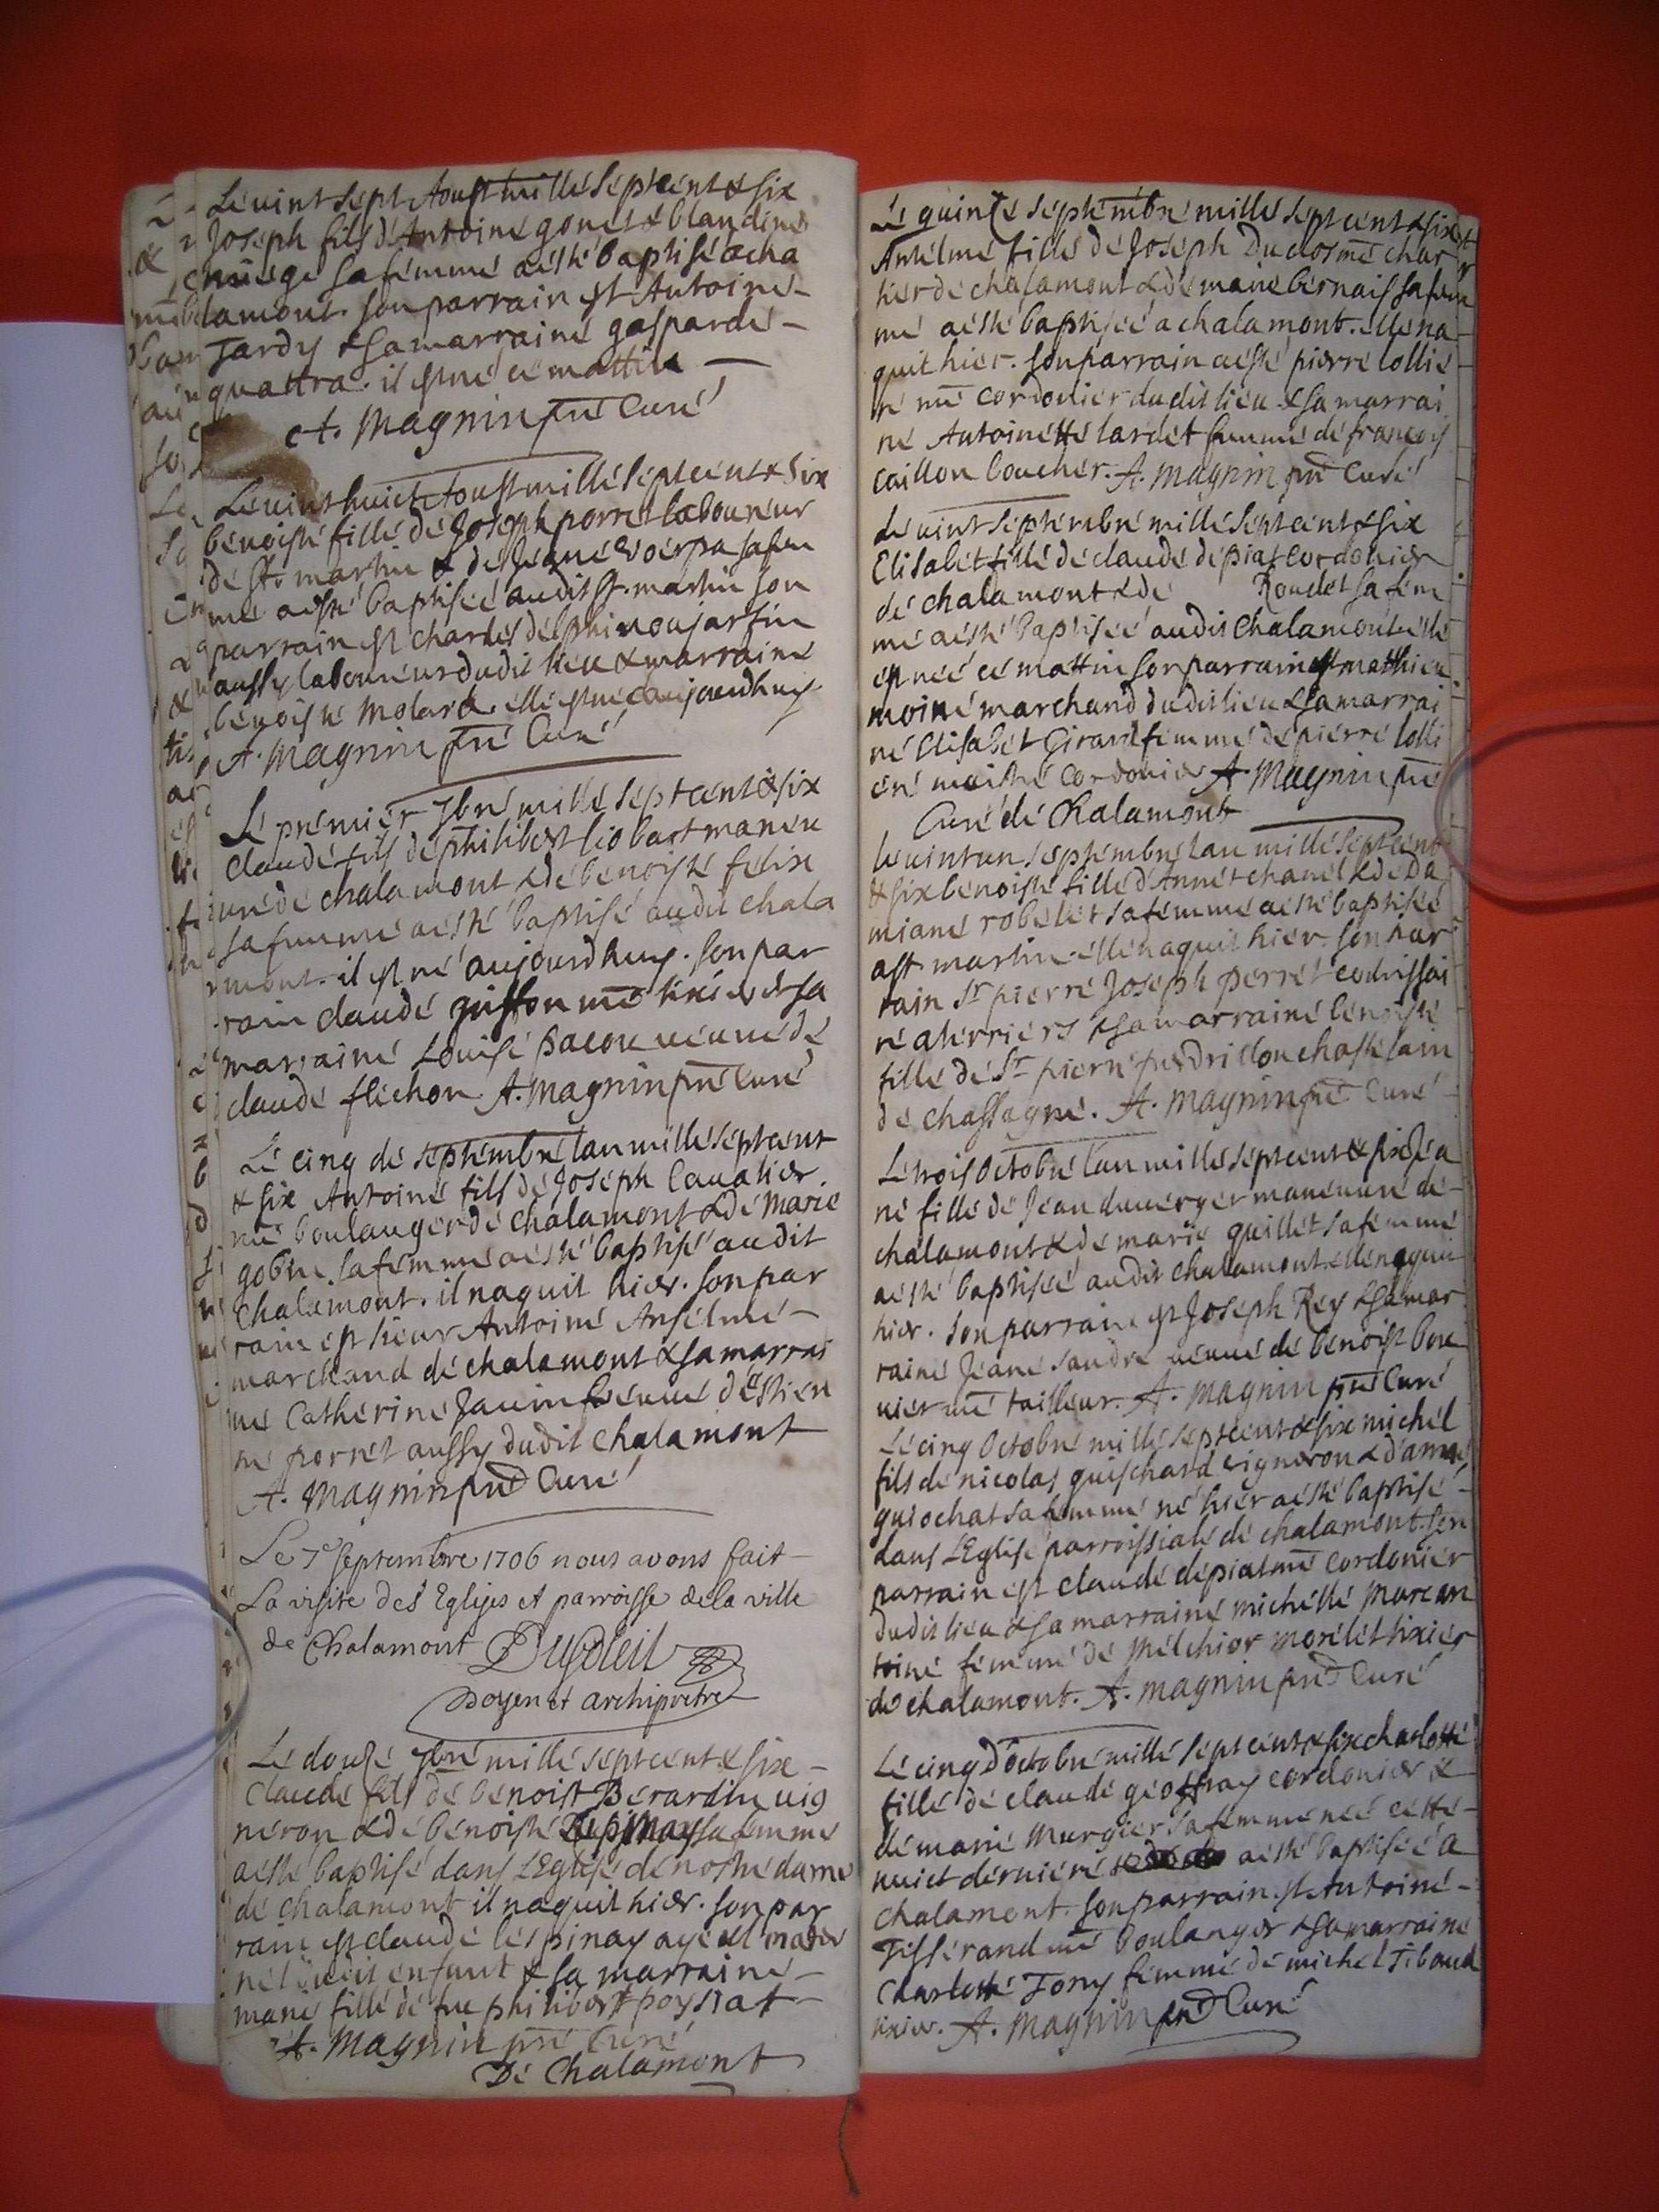 Le vint sept Aoust mille sept cent & six
Joseph fils d'Antoine gonet & blandine
sa femme a esté baptisé a cha
lamont. son parrain est Antoine
Tardy & sa marraine gasparde
quattra. il est né ce mattin
A. Magnin pre Curé
Le vint huict Aoust mille sept cent & six
benoiste fille de Joseph porret laboureur
de st. martin & de Jeane sa fem
me a esté baptisée audit st. martin son
parrain est charles
aussy laboureur dudit lieu & marraine
benoiste Molard. elle est née aujourdhuy
A. Magnin pre Curé
Le premier 7bre mille sept cent & six
Claude fils de philibert liobart maneu
vre de chalamont & de benoiste felix
sa femme a esté baptisé audit chala
mont. il est né aujourdhuy. son par
rain claude guisson me tixier & sa
marraine Louise pacou veuve de
claude flechon A. Magnin pre Curé
Le cinq de septembre lan mille sept cent
& six Antoine fils de Joseph Cavalier
me boulanger de chalamont & de Marie
gobin sa femme a esté baptisé audit
Chalamont. il naquit hier. son par
rain est sieur Antoine Anselme
marchand de chalamont & sa marrai
ne Catherine Janin veuve d'Estien
ne porret aussy dudit Chalamont
A. Magnin pre Curé
Le 7e septembre 1706 nous avons fait
La visite des Eglises et parroisse de la ville
de Chalamont
Doyen et archipretre
Le douze 7bre mille sept cent & six
Claude fils de benoist Berardin vig
neron & de benoiste sa femme
a esté baptisé dans LEglise de nostre dame
de chalamont il naquit hier. son par
rain est claude lespinay ayeul mater
nel dudit enfant & sa marraine
marie fille de feu philibert poysat
A. Magnin pre Curé
De Chalamont
Le quinze septembre mille sept cent & six
Anselme fille de Joseph Duclos me char
tier de chalamont & de marie bernais sa fem
me a esté baptisée a chalamont. elle na
quit hier. son parrain a esté pierre lollie
re me cordonier dudit lieu & sa marrai
ne Antoinette lardet femme de françois
caillon boucher. A. Magnin pre Curé
Le vint septembre mille sept cent & six
Elisabet fille de claude depiat cordonier
de chalamont & de Roudet sa fem
me a esté baptisée audit Chalamont elle
est neé ce mattin son parrain est mathieu
moine marchand dudit lieu & sa marrai
ne Elisabet Girard femme de pierre lolli
ere maistre cordonier A. Magnin pre
Curé de Chalamont
Le vint un septembre lan mille sept cent
& six benoiste fille d'Annet chanel & de Da
miane robelet sa femme a esté baptisée
a st. martin. elle naquit hier. son par
rain Sr. pierre Joseph perret commissai
re a terriers & sa marraine benoiste
fille de Sr. pierre perdrillon chastelain
de chassagne. A. Magnin pre Curé
Le trois Octobre lan mille sept cent & six Jea
ne fille de Jean duverger maneuvre de
chalamont & de marie quillet sa femme
a esté baptisée audit chalamont. elle naquit
hier. son parrain est Joseph Rey & sa mar
raine Jeane sandre veuve de benoist bou
vier me tailleur. A. Magnin pre Curé
Le cinq Octobre mille sept cent & six michel
fils de nicolas guischard vigneron & d'anne
guiochat sa femme né hier a esté baptisé
dans LEglise parroissiale de chalamont. son
parrain est claude depiat me cordonier
dudit lieu & sa marraine michelle Marcan
toine femme de Melchior morelet tixier
de chalamont. A. Magnin pre Curé
Le cinq d'octobre mille sept cent & six charlotte
fille de claude geoffray cordonier &
de marie Murgier sa femme neé cette
nuict derniere a esté baptisée a
Chalamont. son parrain est Antoine
Tisserand me boulanger & sa marraine
Charlotte Tony femme de michel Tibaud
tixier. A. Magnin pre Curé